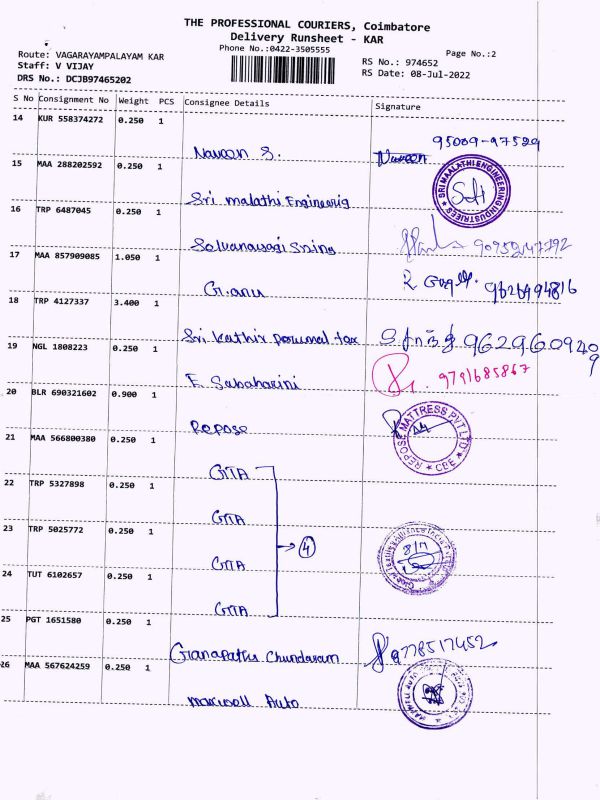 THE PROFESSIONAL COURIERS, Coimbatore
Delivery Runsheet - KAR
Phone No.:0422-3505555
Page No.:2
Route: VAGARAYAMPALAYAM KAR
Staff: V VIJAY
DRS No.: DCJB97465202
RS No.: 974652
RS Date: 08-Jul-2022
S No Consignment No Weight PCS Consignee Details Signature
14 KUR 558374272 0.250 1
95009-97529
Naveen S. Naveen
15 MAA 288202592 0.250 1
SRI MAALATHI ENGINEERING INDUSTRIES
Sri malathi Engineerig
16 TRP 6487045 0.250 1
Selvanayagi Sining
17 MAA 857909085 1.050 1
G. anu 9626494816
18 TRP 4127337 3.400 1
Sri kathir perumal tex 9629609409
19 NGL 1808223 0.250 1
E. Sabaharini 9791685867
20 BLR 690321602 0.900 1
Repose
REPOSE MATTRESS PVT LTD CBE
21 MAA 566800380 0.250 1
GTA
22 TRP 5327898 0.250 1
GTA
4
23 TRP 5025772 0.250 1
GTA
24 TUT 6102657 0.250 1
GTA
25 PGT 1651580 0.250 1
Ganapathi Chundaram 9778517452
26 MAA 567624259 0.250 1
maxwell Auto